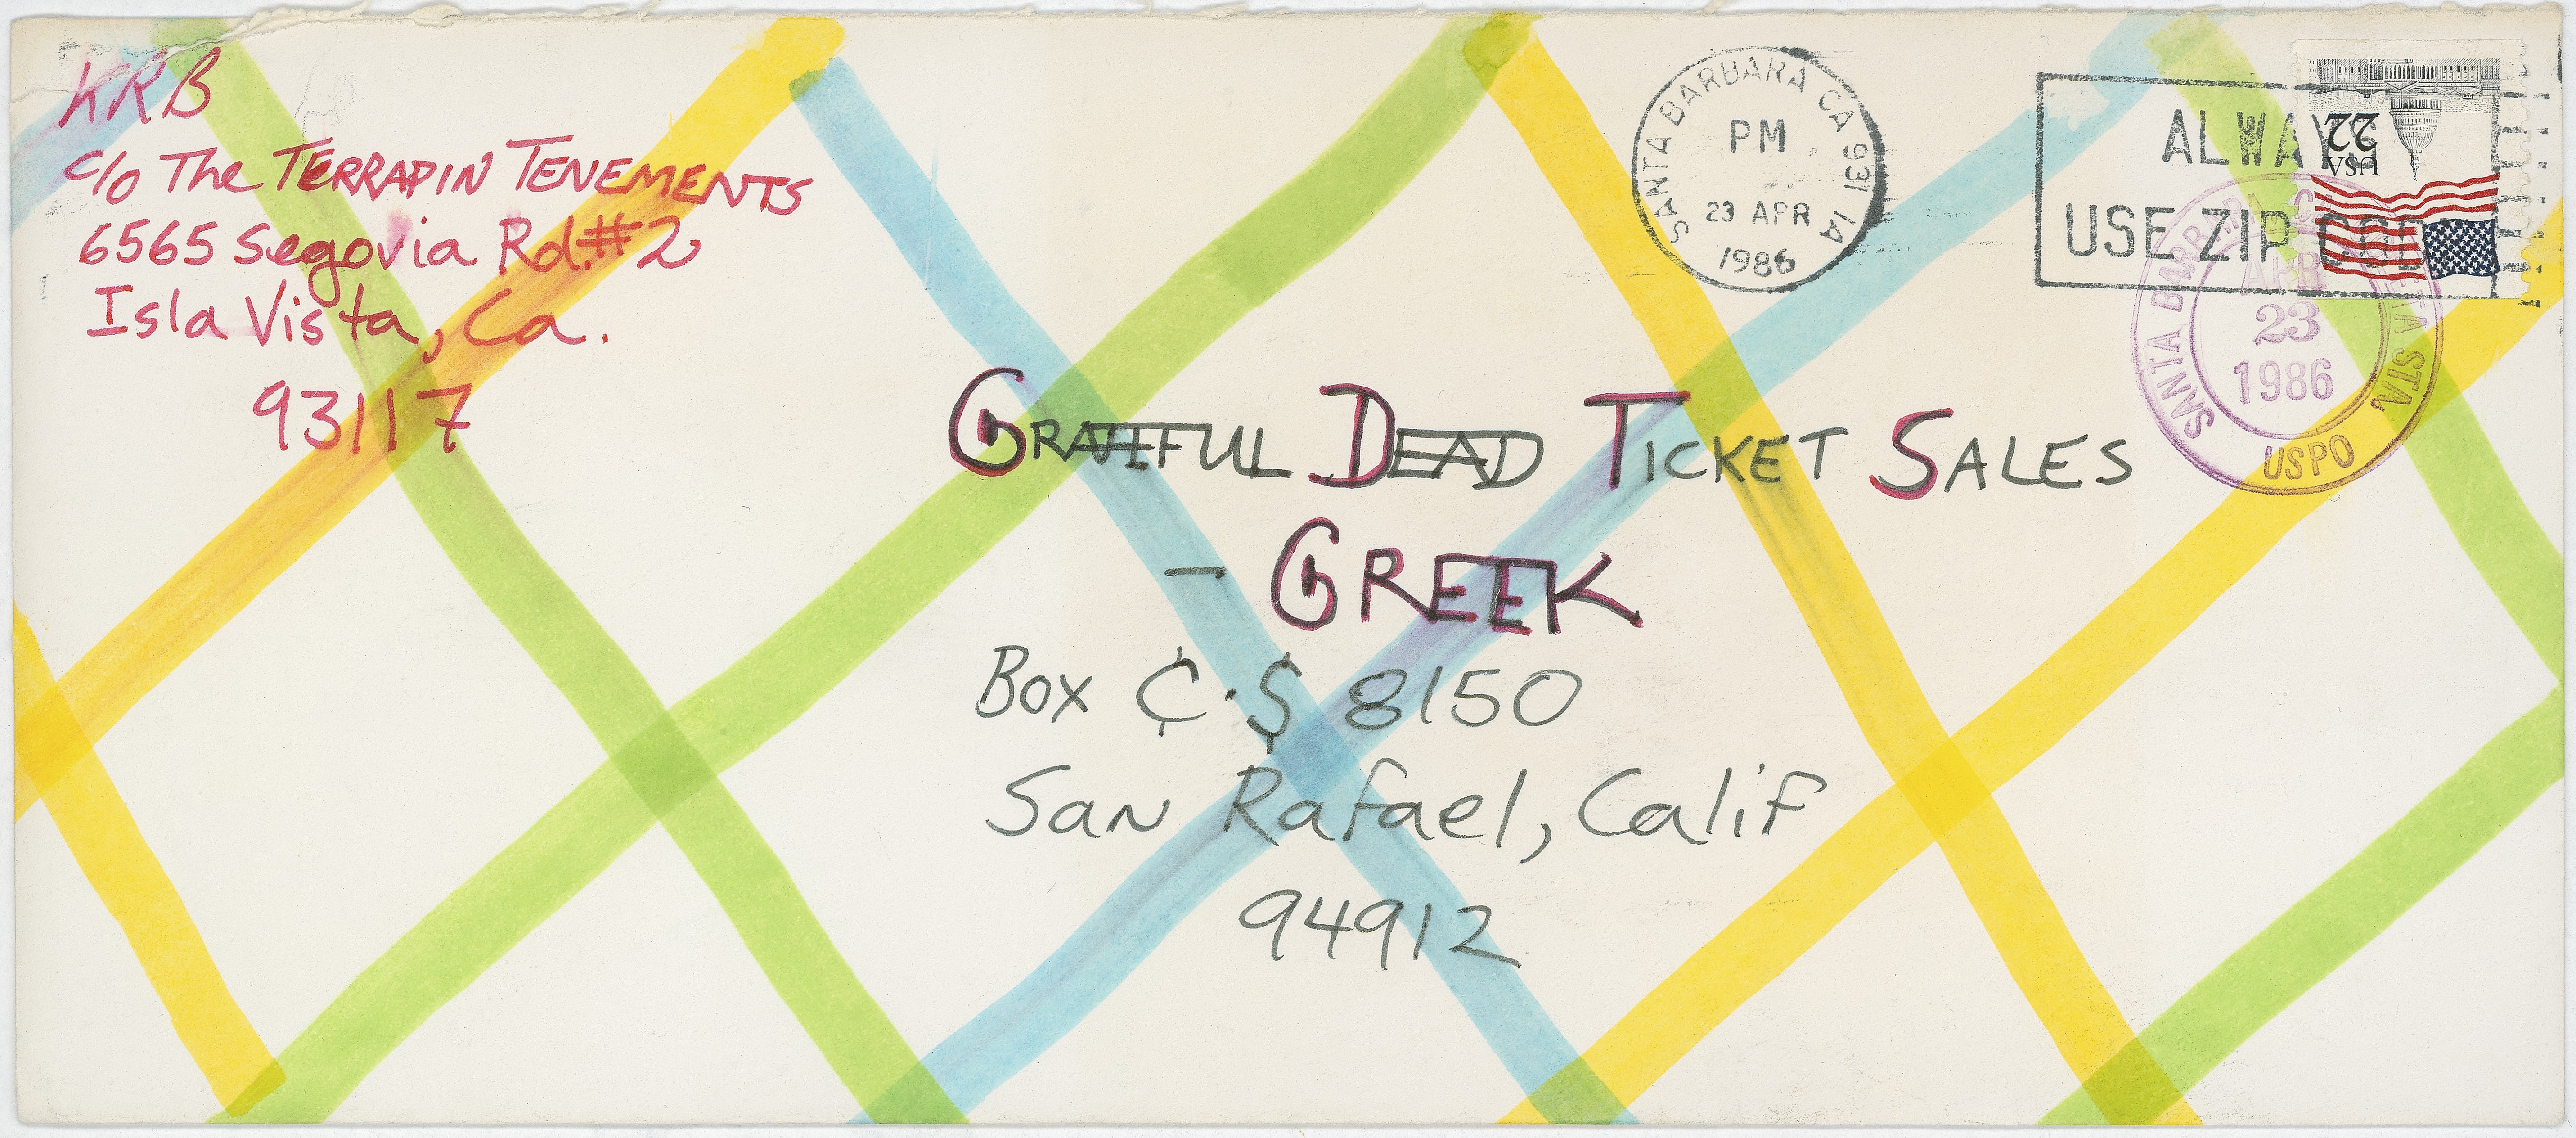 KRB
c/o The TERRAPIN TENEMENTS
6565 Segovia Rd. #2
Isla Vista, Ca.
93117
SANTA BARBARA CA 931 1A
PM
23 APR
1986
ALWAYS
USE ZIP CODE
USA
22
SANTA BARBARA, STA.
APR
23
1986
USPO
GRATEFUL DEAD TICKET SALES
- GREEK
Box ¢·$ 8150
San Rafael, Calif
94912